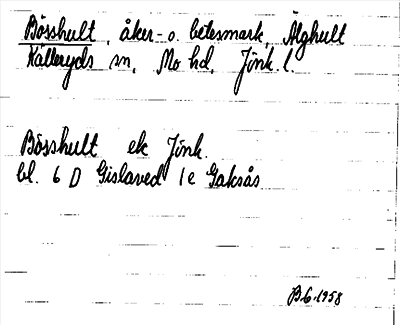 Bösshult, åker- o. betesmark, Älghult
Källeryds sn, Mo hd, Jönk. l.
Bösshult ek Jönk.
bl. 6 D Gislaved 1e Gaksås
B.G. 1958